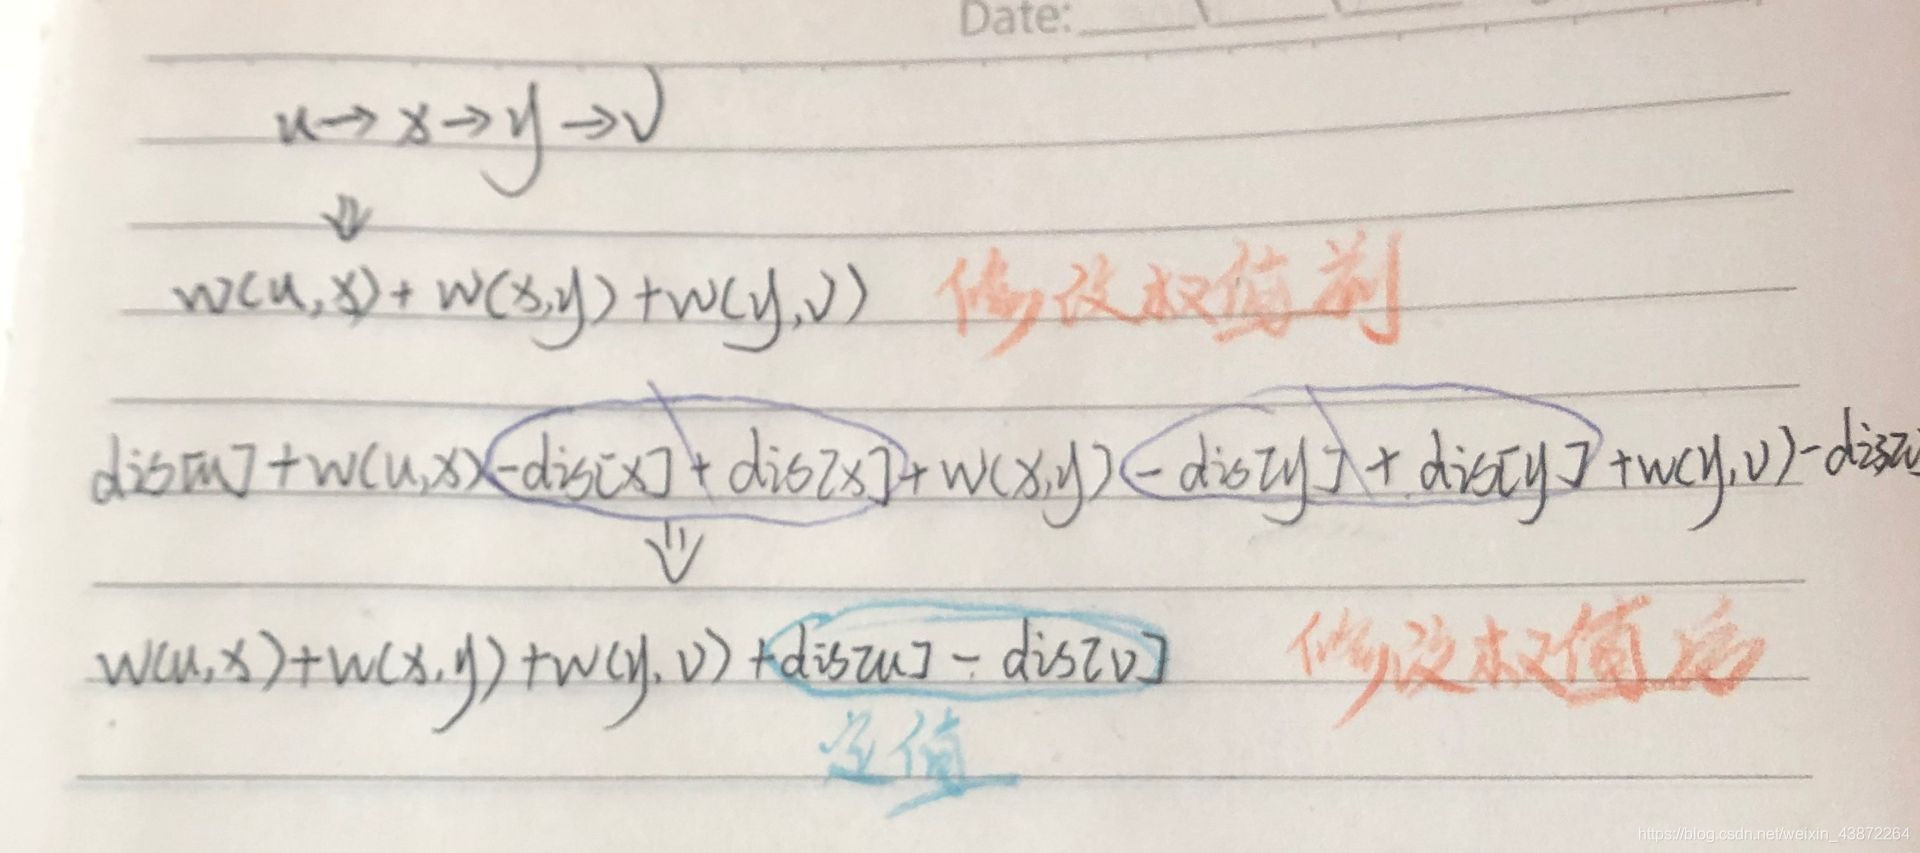 Date:
u→x→y→v
⇓
w(u,x)+w(x,y)+w(y,v) 修改权值前
dis[u]+w(u,x)-dis[x]+dis[x]+w(x,y)-dis[y]+dis[y]+w(y,v)-dis[v]
⇓
w(u,x)+w(x,y)+w(y,v)+dis[u]-dis[v] 修改权值后
定值
https://blog.csdn.net/weixin_43872264